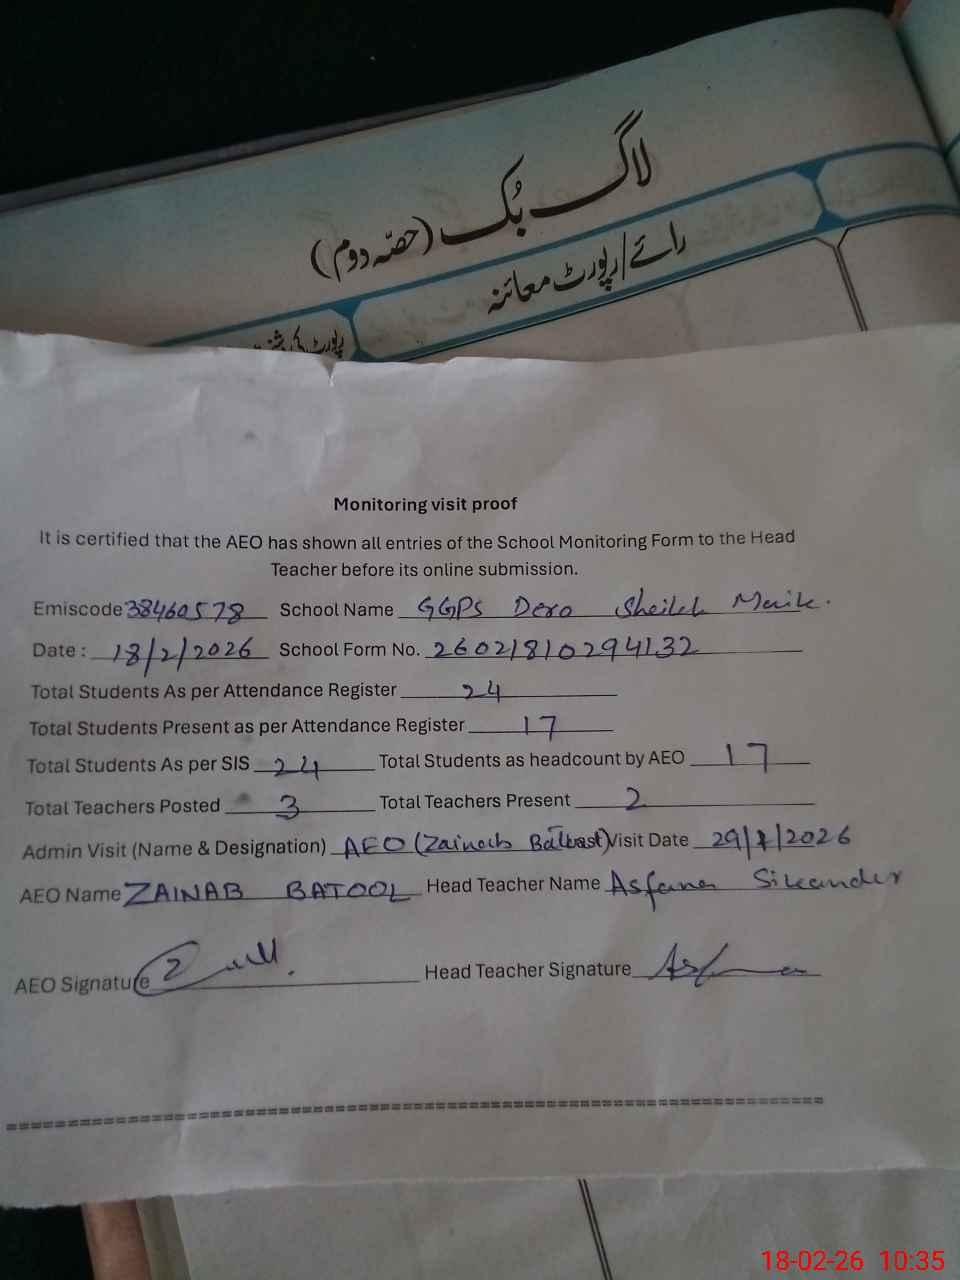 لاگ بُک (حصّہ دوم)
رائے/رپورٹ معائنہ
رپورٹ کی
Monitoring visit proof
It is certified that the AEO has shown all entries of the School Monitoring Form to the Head
Teacher before its online submission.
Emiscode 38460578 School Name GGPS Dera Sheikh Maik.
Date : 18/2/2026 School Form No. 26021810294132
Total Students As per Attendance Register 24
Total Students Present as per Attendance Register 17
Total Students As per SIS 24 Total Students as headcount by AEO 17
Total Teachers Posted 3 Total Teachers Present 2
Admin Visit (Name & Designation) AEO (Zainab Visit Date 29/1/2026
AEO Name ZAINAB BATOOL Head Teacher Name Asfana Sikander
AEO Signature Head Teacher Signature
18-02-26 10:35